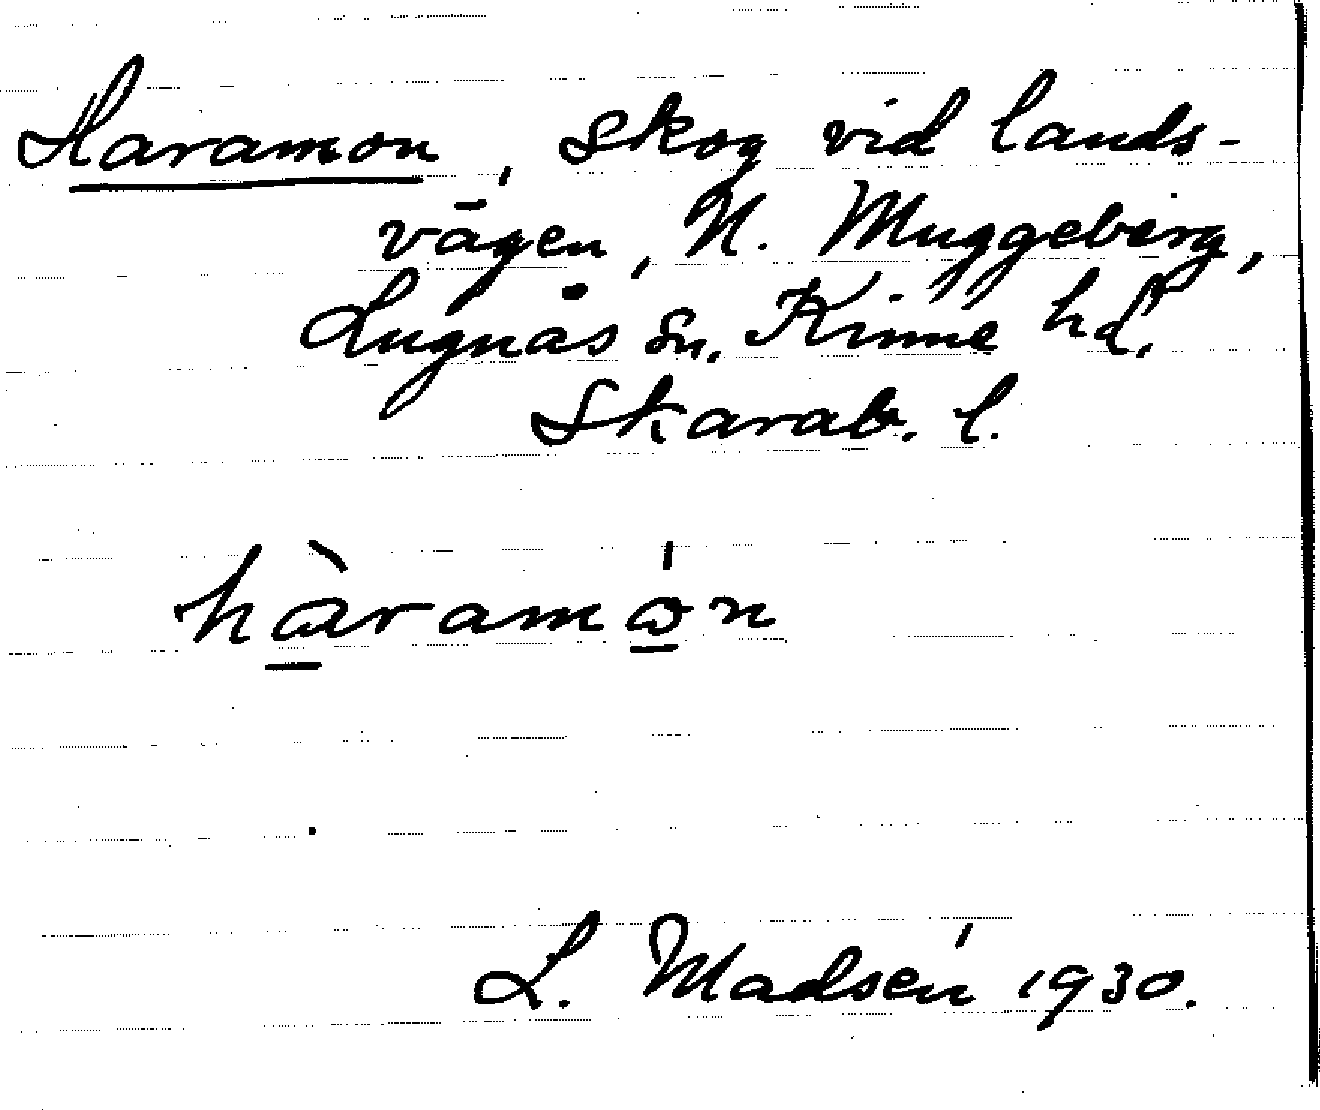 Haramon, skog vid lands-
vägen, N. Muggeberg,
Lugnås sn, Kinne hd,
Skarab. l.
hàramòn
L. Madsén 1930.